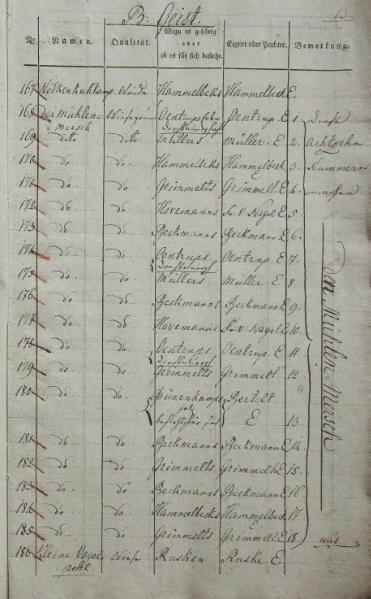 B. Geist.
No. Namen. Qualität. Wozu es gehörig oder ob es für sich bestehe. Eigner oder Pächter. Bemerkung
167 Weide Hammelbecks Hammelbeck E.
168 der mühlen mersch Oentrups Oentrup. E 1. Diese
169 dito dito Müllers Müller. E 2. Achtzehn
170 do do Hammelbecks Hammelbeck E 3. Nummern
171 do. do Grimmelts Grimmelt. E 4. machen
172 do do. Hovemanns Fr. v Nagel E 5
173 do do. Beckmanns Beckmann E 6.
174 do. do. Oentrups Oentrup E 7.
175 do. do. Müllers Müller. E 8
176 do. do. Beckmanns Beckmann E 9
177 do. do. Hovemanns Fr. v Nagel E 10.
178 do. do. Oentrups Oentrup. E 11
179 do. do. Grimmelts Grimmelt. 12.
180 do. do. E 13.
181 do. do Beckmanns Beckmann E 14.
182 do do Grimmelts Grimmelt E 15.
183 do do Beckmanns Beckmann E 16
184 do do. Hammelbecks Hammelbeck 17
185 do. do. Grimmelts Grimmelt E 18. aus
den Mühlen Mersch
186 Kleine Rusken Ruske. E